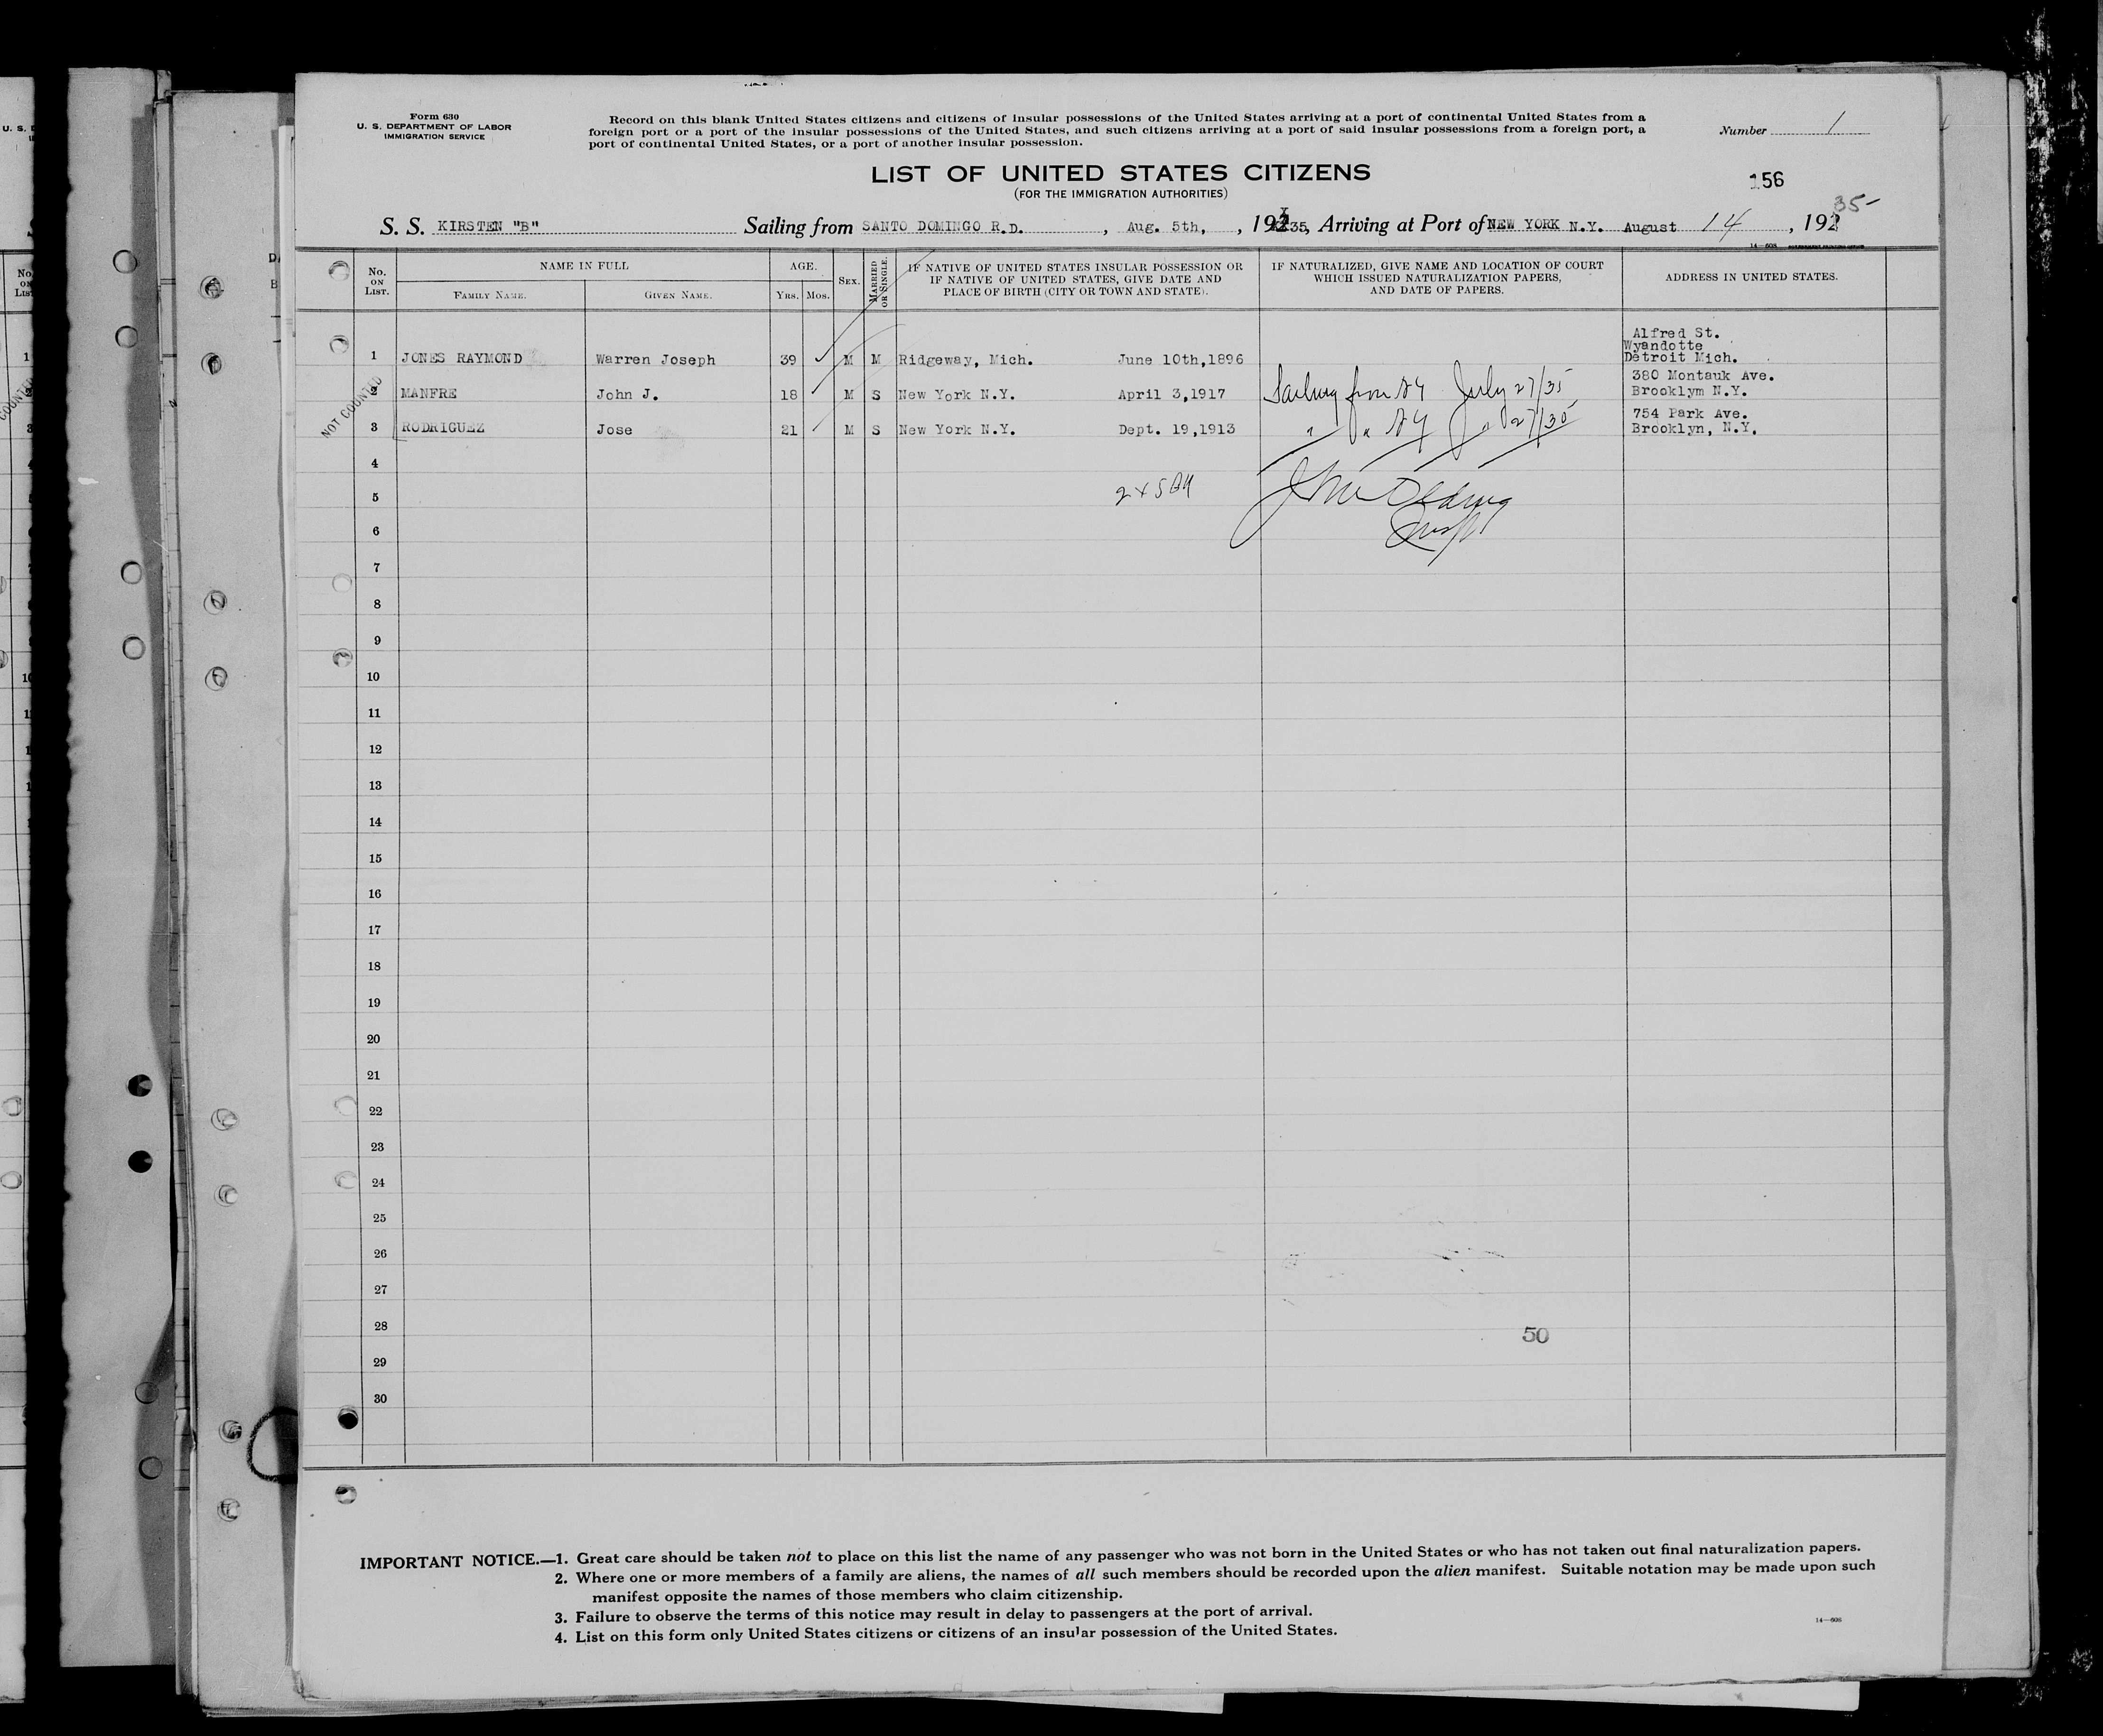 Form 630
U. S. DEPARTMENT OF LABOR
IMMIGRATION SERVICE
Record on this blank United States citizens and citizens of insular possessions of the United States arriving at a port of continental United States from a
foreign port or a port of the insular possessions of the United States, and such citizens arriving at a port of said insular possessions from a foreign port, a
port of continental United States, or a port of another insular possession.
Number 1
LIST OF UNITED STATES CITIZENS
(FOR THE IMMIGRATION AUTHORITIES)
156
S. S. KIRSTEN "B" Sailing from SANTO DOMINGO R.D. , Aug. 5th, , 1935, Arriving at Port of NEW YORK N.Y. August 14 , 192 35-
14-608 GOVERNMENT PRINTING OFFICE
No. ON LIST. NAME IN FULL AGE. SEX. MARRIED OR SINGLE. IF NATIVE OF UNITED STATES INSULAR POSSESSION OR IF NATIVE OF UNITED STATES, GIVE DATE AND PLACE OF BIRTH (CITY OR TOWN AND STATE). IF NATURALIZED, GIVE NAME AND LOCATION OF COURT WHICH ISSUED NATURALIZATION PAPERS, AND DATE OF PAPERS. ADDRESS IN UNITED STATES.
FAMILY NAME. GIVEN NAME. YRS. MOS.
Alfred St.
Wyandotte
1 JONES RAYMOND Warren Joseph 39 M M Ridgeway, Mich. June 10th,1896 Detroit Mich.
380 Montauk Ave.
2 MANFRE John J. 18 M S New York N.Y. April 3,1917 Sailing from NY July 27/35 Brooklym N.Y.
NOT COUNTED
754 Park Ave.
3 RODRIGUEZ Jose 21 M S New York N.Y. Dept. 19,1913 " " NY " 27/35 Brooklyn, N.Y.
4
5
Insp
6
7
8
9
10
11
12
13
14
15
16
17
18
19
20
21
22
23
24
25
26
27
28
50
29
30
IMPORTANT NOTICE.—1. Great care should be taken not to place on this list the name of any passenger who was not born in the United States or who has not taken out final naturalization papers.
2. Where one or more members of a family are aliens, the names of all such members should be recorded upon the alien manifest. Suitable notation may be made upon such
manifest opposite the names of those members who claim citizenship.
3. Failure to observe the terms of this notice may result in delay to passengers at the port of arrival.
14—608
4. List on this form only United States citizens or citizens of an insular possession of the United States.